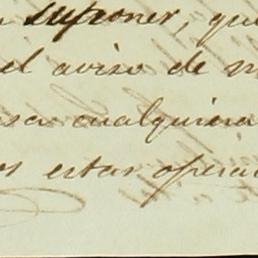 suponer, que
el aviso de m
sea cualquiera
os estas opera